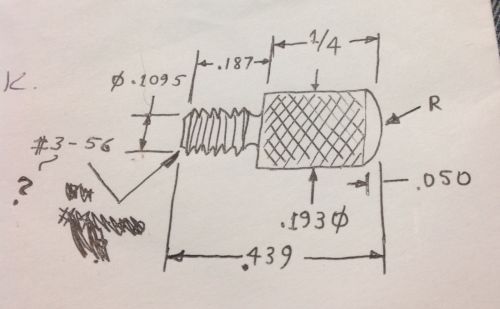 K.
1/4
.187
Ø.1095
R
#3-56
?
.050
.193Ø
.439